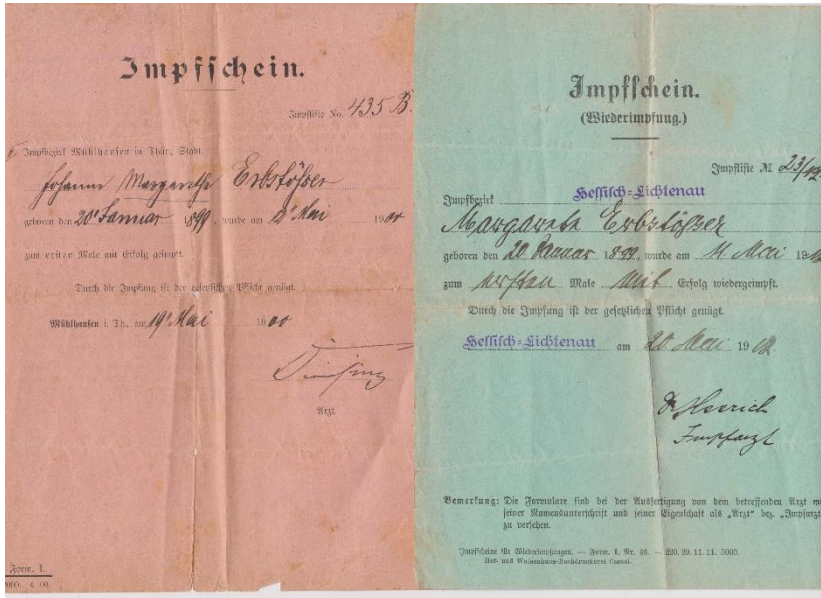 Impfschein.
Impfliste No. 435 B.
Impfbezirk Mühlhausen in Thür., Stadt.
Johanne Margarethe Erbstößer
geboren den 20 Januar 1899, wurde am 12 Mai 1900
zum ersten Male mit Erfolg geimpft.
Durch die Impfung ist der gesetzlichen Pflicht genügt.
Mühlhausen i. Th., am 19 Mai 1900
Arzt.
Form. I.
4. 00.
Impfschein.
(Wiederimpfung.)
Impfliste № 23/12
Impfbezirk Hessisch-Lichtenau
Margarete Erbstößer
geboren den 20 Januar 1899, wurde am Mai 19
zum ersten Male mit Erfolg wiedergeimpft.
Durch die Impfung ist der gesetzlichen Pflicht genügt.
Hessisch-Lichtenau am 20 Mai 1912
Impfarzt
Bemerkung: Die Formulare sind bei der Ausfertigung von dem betreffenden Arzt
seiner Namensunterschrift und seiner Eigenschaft als „Arzt" bez. „Impfarzt
zu versehen.
Impfscheine für Wiederimpfungen. — Form. I, Nr. 46. — 220. 29. 11. 11. 5000.
Hof- und Waisenhaus-Buchdruckerei Cassel.